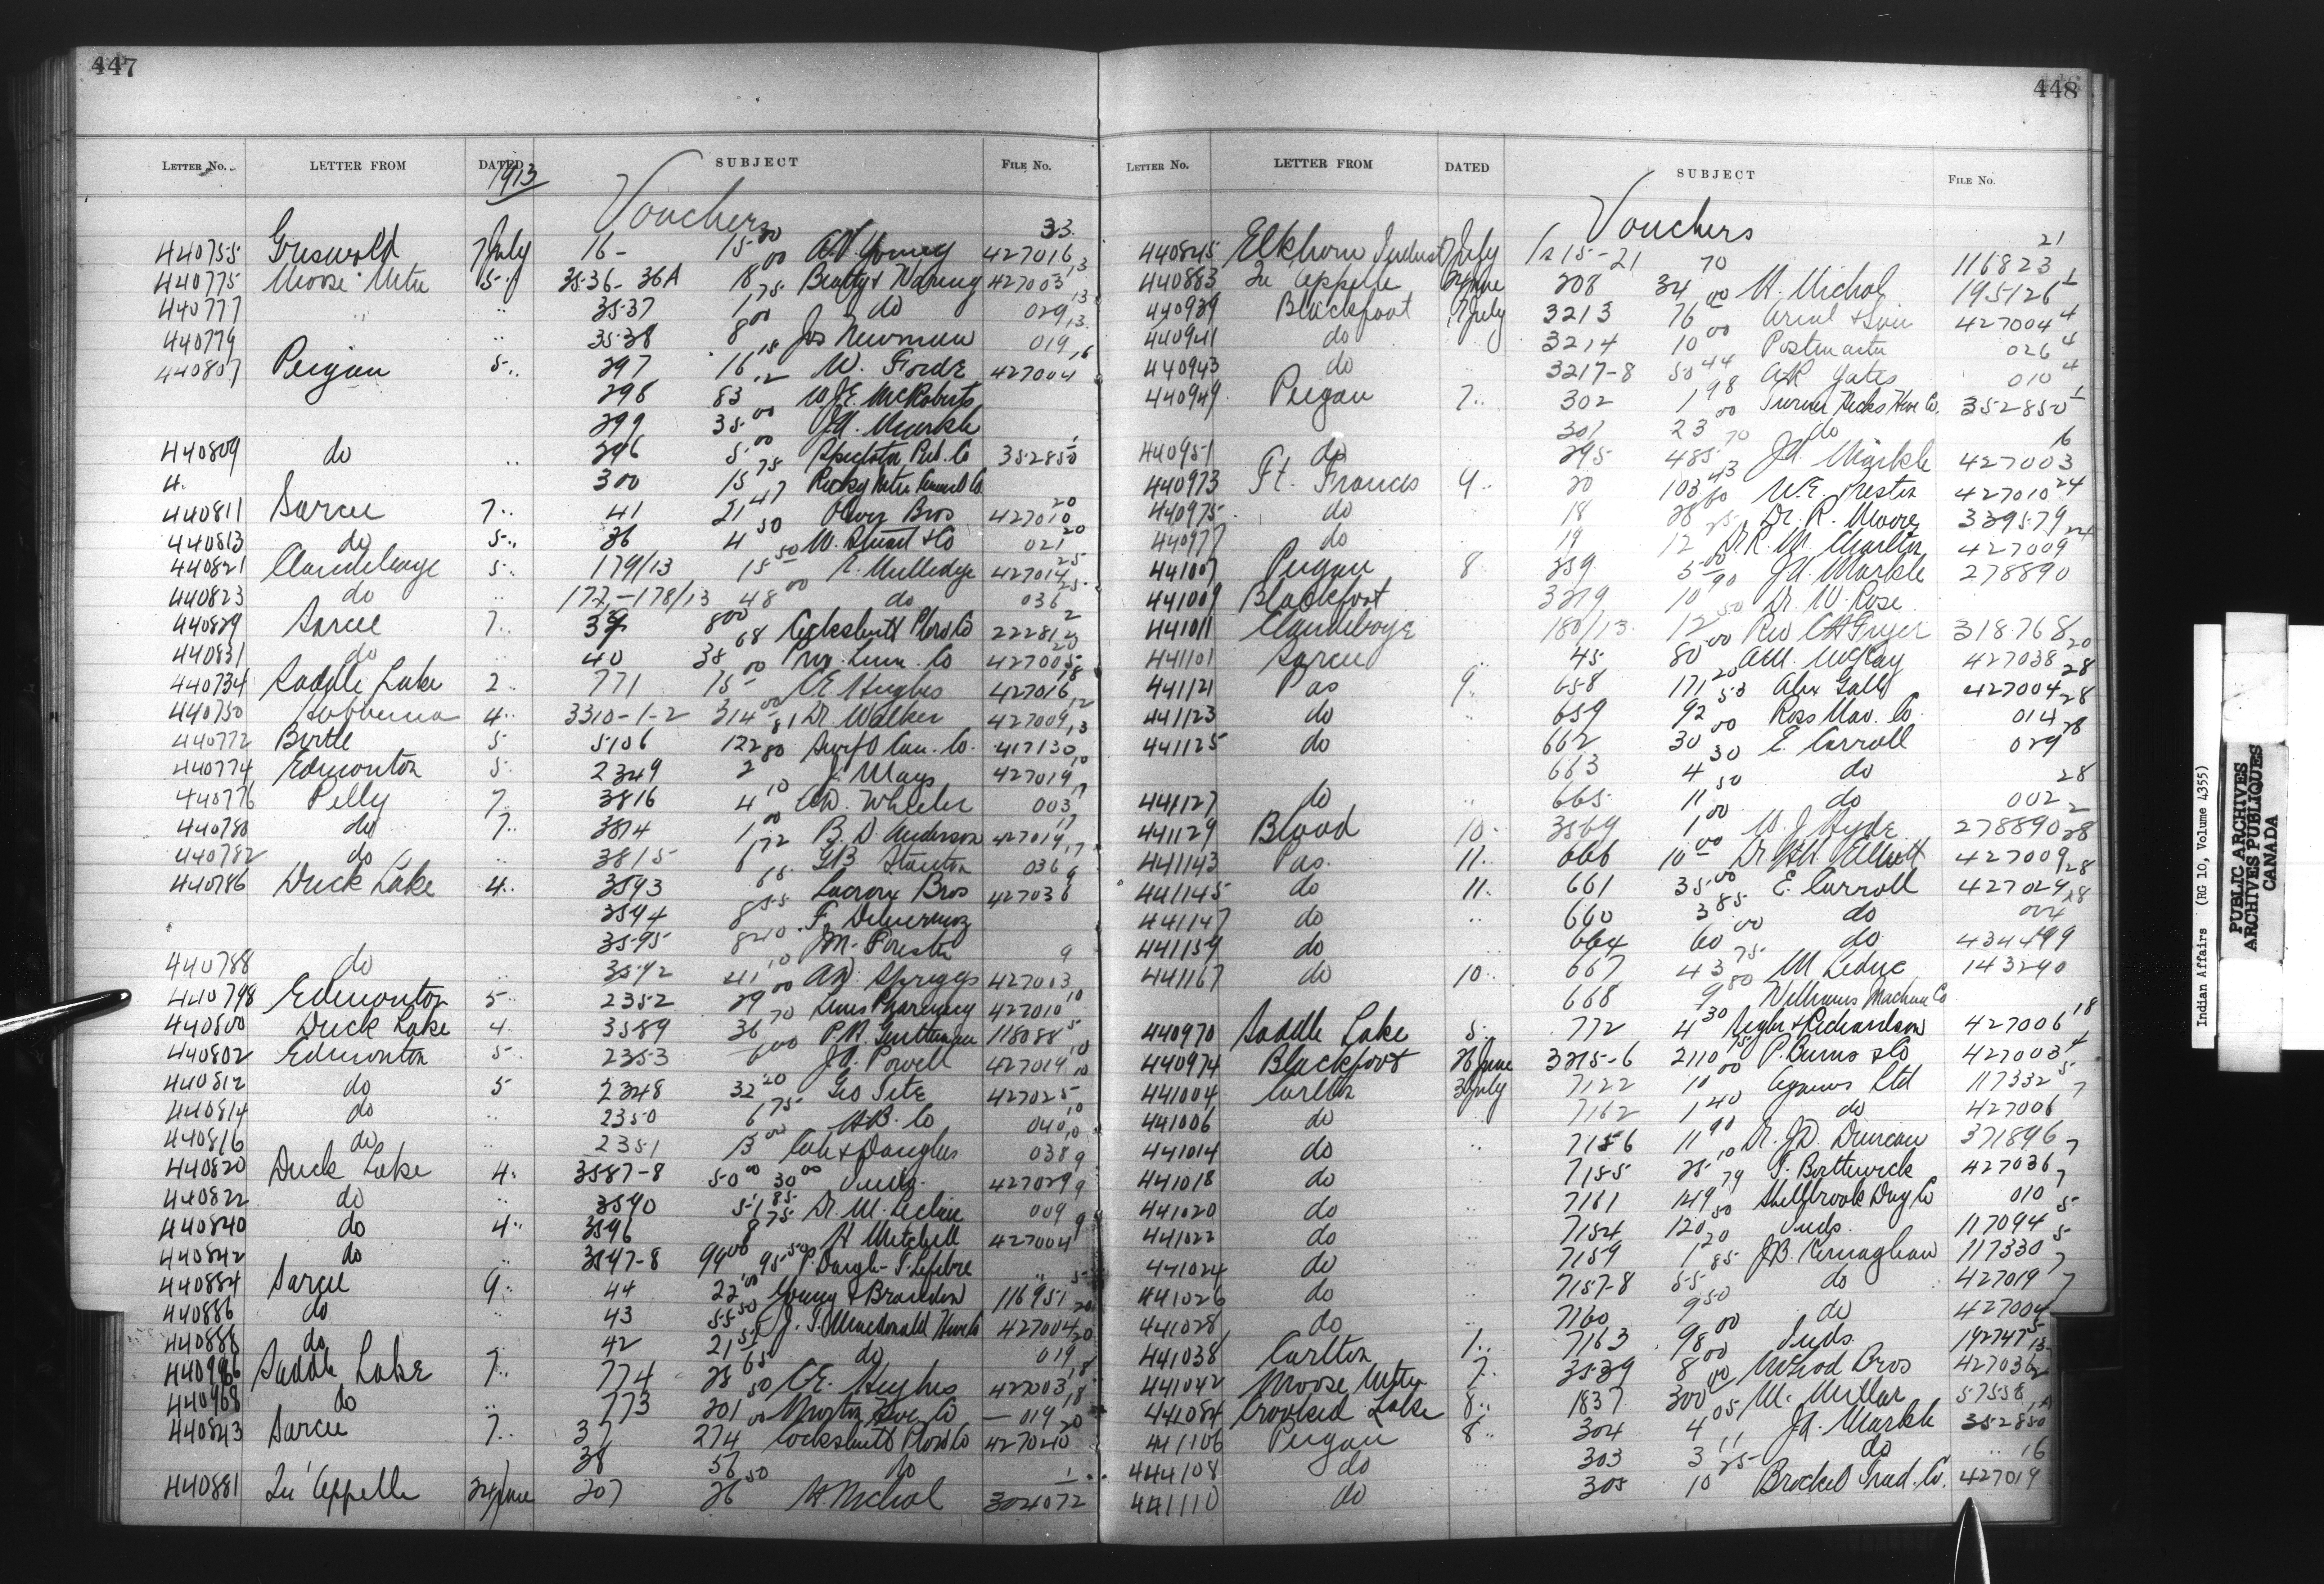 447
LETTER No. LETTER FROM DATED SUBJECT FILE No.
1913
Vouchers
33
440755 Griswold 7 July 16- 15.00 427016
440775 Moose Mtn 5 " 3536-36A 18 00 Beatty & Waring 427003 13
440777 " " 3537 1 75 do 029 13
440779 " 3538 8 00 Jos Newman 019 13
440807 Peigan 5 " 297 16 15 W. Forde 427004 16
298 83 12 W.J.E. McRoberts
299 35 00 J.A. Markle
440809 do " 296 5 00 Spectator Pub. Co 352850 1
300 15 75
440811 Sarcee 7 " 41 21 47 Oliver Bros 427010 20
440813 do 5 " 36 4 50 W. Stuart & Co 021 20
440821 Clandeboye 5 " 179/13 15 50 427014 25
440823 do " 177-178/13 48 00 do 036 25
440829 Sarcee 7 " 39 8 00 Cockshutt Plow Co 22281 2
440831 do " 40 38 68 Prog. Lum. Co 427005 20
440734 Saddle Lake 2 " 771 15 00 C.E. Hughes 427016 18
440750 Hobbema 4 " 3310-1-2 314 00 Dr. Walker 427009 12
440772 Birtle 5 5106 122 81 Swift Can. Co. 417130 13
440774 Edmonton 5 2349 2 80 J. Mays 427019 10
440776 Pelly 7 " 3816 4 10 A.D. Wheeler 003 17
440780 do 7 " 3814 1 00 B.D. Anderson 427019 17
440782 do " 3815 6 72 G.B. Stanton 036 17
440786 Duck Lake 4 " 3593 6 15 Lacroix Bros 427036 9
3594 8 55
3595 8 40
440788 do " 3592 41 10 A.W. Spriggs 427003 9
440798 Edmonton 5 " 2352 29 00 427010 10
440800 Duck Lake 4 " 3589 36 70 118088 5
440802 Edmonton 5 " 2353 6 00 J.A. Powell 427019 10
440812 do 5 2348 32 20 Geo Tite 427025 10
440814 do " 2350 6 75 H.B. Co 040 10
440816 do " 2351 13 00 038
440820 Duck Lake 4 " 3587-8 50 00 30 00 Inds. 427029 9
440822 do " 3590 51 85 009 9
440840 do 4 " 3596 8 75 H Mitchell 427004 9
440842 do " 3597-8 99 00 95 50
440884 Sarcee 9 " 44 22 00 Young & Brandon 116951 5
440886 do " 43 55 50 427004 20
440888 do 42 21 55 do 019 20
440966 Saddle Lake 7 " 774 28 65 C.E. Hughes 427003 18
440968 do " 773 201 50 019 18
440843 Sarcee 7 " 37 274 00 Cockshutt Plow Co 427040 20
38 56 do
440881 Qu'Appelle 24 June 207 26 50 H. Nichol 304072 1
448
LETTER No. LETTER FROM DATED SUBJECT FILE No.
Vouchers
440845 Elkhorn Indust 7 July 15-21 116823 21
440883 Qu'Appelle 24 June 208 34 70 H. Nichol 195126 1
440939 Blackfoot 7 July 3213 76 00 427004 4
440941 do 3214 10 00 Postmaster 026 4
440943 do " 3217-8 50 44 A.R. Yates 010 4
440949 Peigan 7 " 302 1 98 352850 1
301 23 00 do
440951 do 295 485 70 J.A. Markle 427003 16
440973 Ft. Frances 9 " 20 103 43 W.E. Preston 427010 24
440975 do 18 28 60 Dr. R. Moore 339579
440977 do 19 12 25 427009 24
441007 Peigan 8 259 5 00 J.A. Markle 278890
441009 Blackfoot " 3219 10 90 Dr. W. Rose
441011 Clandeboye 180/13 12 50 318768
441101 Sarcee " 45 80 00 A.M. McKay 427038 20
441121 Pas 9 " 658 171 20 Alex Gall 427004 28
441123 do " 659 92 50 Ross Nav. Co. 014 28
441125 do " 662 30 00 E. Carroll 029 28
663 4 30 do
441127 do " 665 11 50 do 002 28
441129 Blood 10 " 3569 1 00 W.J. Hyde 278890 2
441143 Pas. 11 " 666 10 00 427009 28
441145 do 11 " 661 35 00 E. Carroll 427029 28
441147 do " 660 3 85 do 004 28
441159 do 664 60 00 do 434499
441167 do 10 " 667 43 75 M Leduc 143290
668 9 80 Williams Machine Co
440970 Saddle Lake 5 " 772 4 30 427006 18
440974 Blackfoot 28 June 3215-6 2110 75 P. Burns & Co 427003 4
441004 Carlton 3 July 7122 10 00 Agnews Ltd 117332 5
441006 do " 7162 1 40 do 427006 7
441014 do " 7156 11 90 Dr. J.D. Duncan 371896
441018 do " 7155 25 10 T. Borthwick 427036 7
441020 do " 7161 149 79 Shellbrook Drug Co 010 7
441022 do " 7154 120 50 Inds. 117094 5
441024 do " 7159 1 20 J.B. Kernaghan 117330 5
441026 do " 7157-8 55 85 do 427019 7
441028 do " 7160 9 50 do 427004 7
441038 Carlton 1 " 7163 98 00 Inds. 192747 5
441042 Moose Mtn 7 " 3539 8 00 McLeod Bros 427036 13
441084 Crooked Lake 8 " 1837 300 00 M. Millar 57558
441106 Peigan 8 " 304 4 05 J.A. Markle 352850
444108 do 303 3 11 do "
441110 do " 305 10 25 Brocket Trad. Co. 427019 16
Indian Affairs (RG 10, Volume 4355)
PUBLIC ARCHIVES
ARCHIVES PUBLIQUES
CANADA